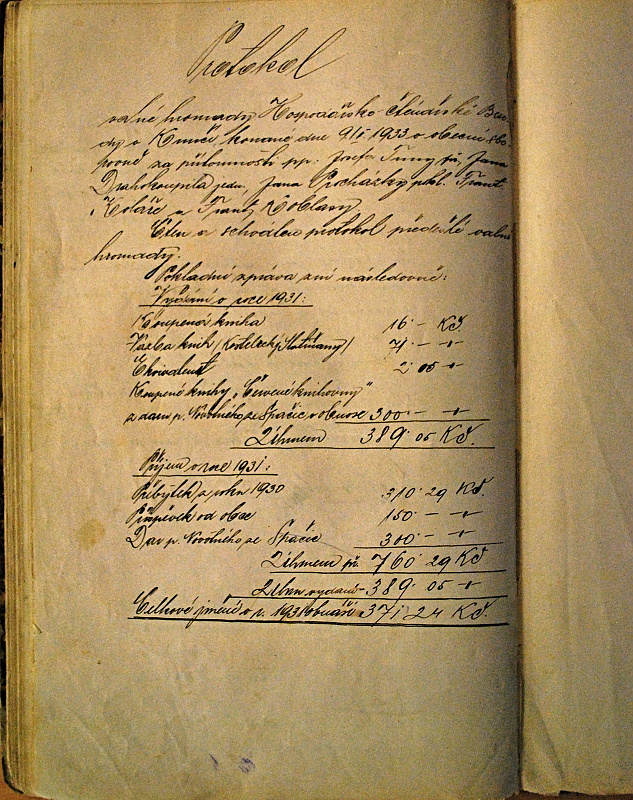 Protokol
valné hromady Hospodářsko-čtenářské Bese-
dy v konané dne 9/II 1933 v obecní
za přítomnosti pp: Josefa Tůmy př., Jana
Drahokoupila jedn., Jana Procházky pokl. Frant.
Koláře a Frant. Koblasy
Čten a schválen protokol předešlé valné
hromady.
Pokladní zpráva zní následovně:
Vydání v roce 1931:
Koupená kniha 16·— Kč
Vazba knih (Kostelecký Slatiňany) 71·— "
Ekvivalent 2·05 "
Koupené knihy „Červené knihovny"
z daru p. Novotného ze Spačic v obnose 300·— "
Úhrnem 389·05 Kč.
Příjem v roce 1931:
Přebytek z roku 1930 310·29 Kč.
Příspěvek od obce 150·— "
Dar p. Novotného ze Spačic 300·— "
Úhrnem př. 760·29 Kč
Úhrn vydání - 389·05 "
Celkové jmění v r. 1931 obnáší 371·24 Kč.